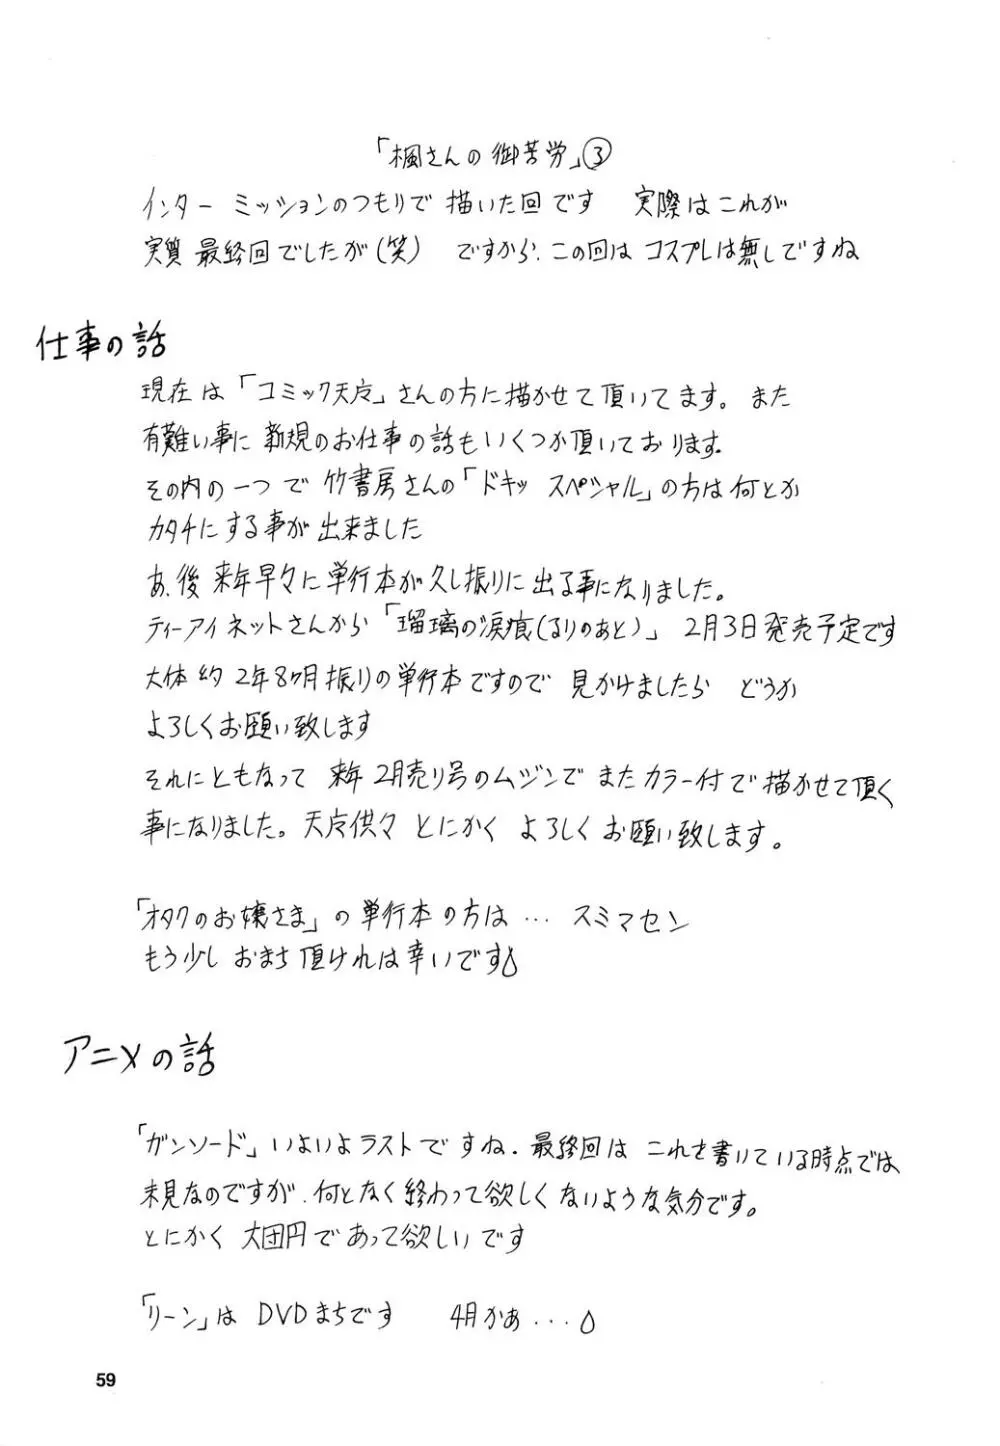 「楓さんの御苦労」③
インターミッションのつもりで 描いた回です　実際はこれが
実質最終回でしたが(笑)　ですから、この回は コスプレは無しですね
仕事の話
現在は「コミック天広」さんの方に描かせて頂いてます。また
有難い事に 新規のお仕事の話もいくつか頂いております。
その内の一つで 竹書房さんの「ドキッ スペシャル」の方は何とか
カタチにする事が出来ました
あ、後 来年早々に単行本が久し振りに出る事になりました。
ティーアイネットさんから「瑠璃の涙痕(るりのあと)」 2月3日発売予定です
大体 約2年8ヶ月振りの単行本ですので 見かけましたら どうか
よろしくお願い致します
それにともなって 来年2月売り号のムジンで またカラー付で描かせて頂く
事になりました。天広供々 とにかく よろしくお願い致します。
「オタクのお嬢さま」の単行本の方は… スミマセン
もう少しおまち頂ければ幸いです
アニメの話
「ガンソード」いよいよラストですね。最終回は これを書いている時点では
未見なのですが、何となく終わって欲しくないような気分です。
とにかく 大団円であって欲しいです
「リーン」は DVDまちです　4月かぁ...
59